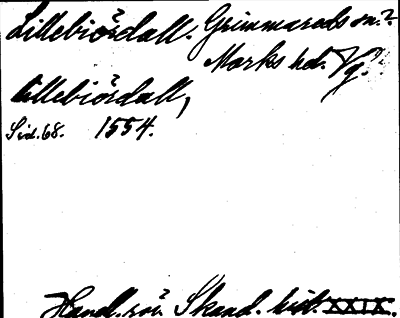 Lillebiördall. Grimmareds sn.?
Marks hd. Vg.
Lillebiördall,
Sid. 68. 1554.
Handl. rör. Skand. hist. XXIX.